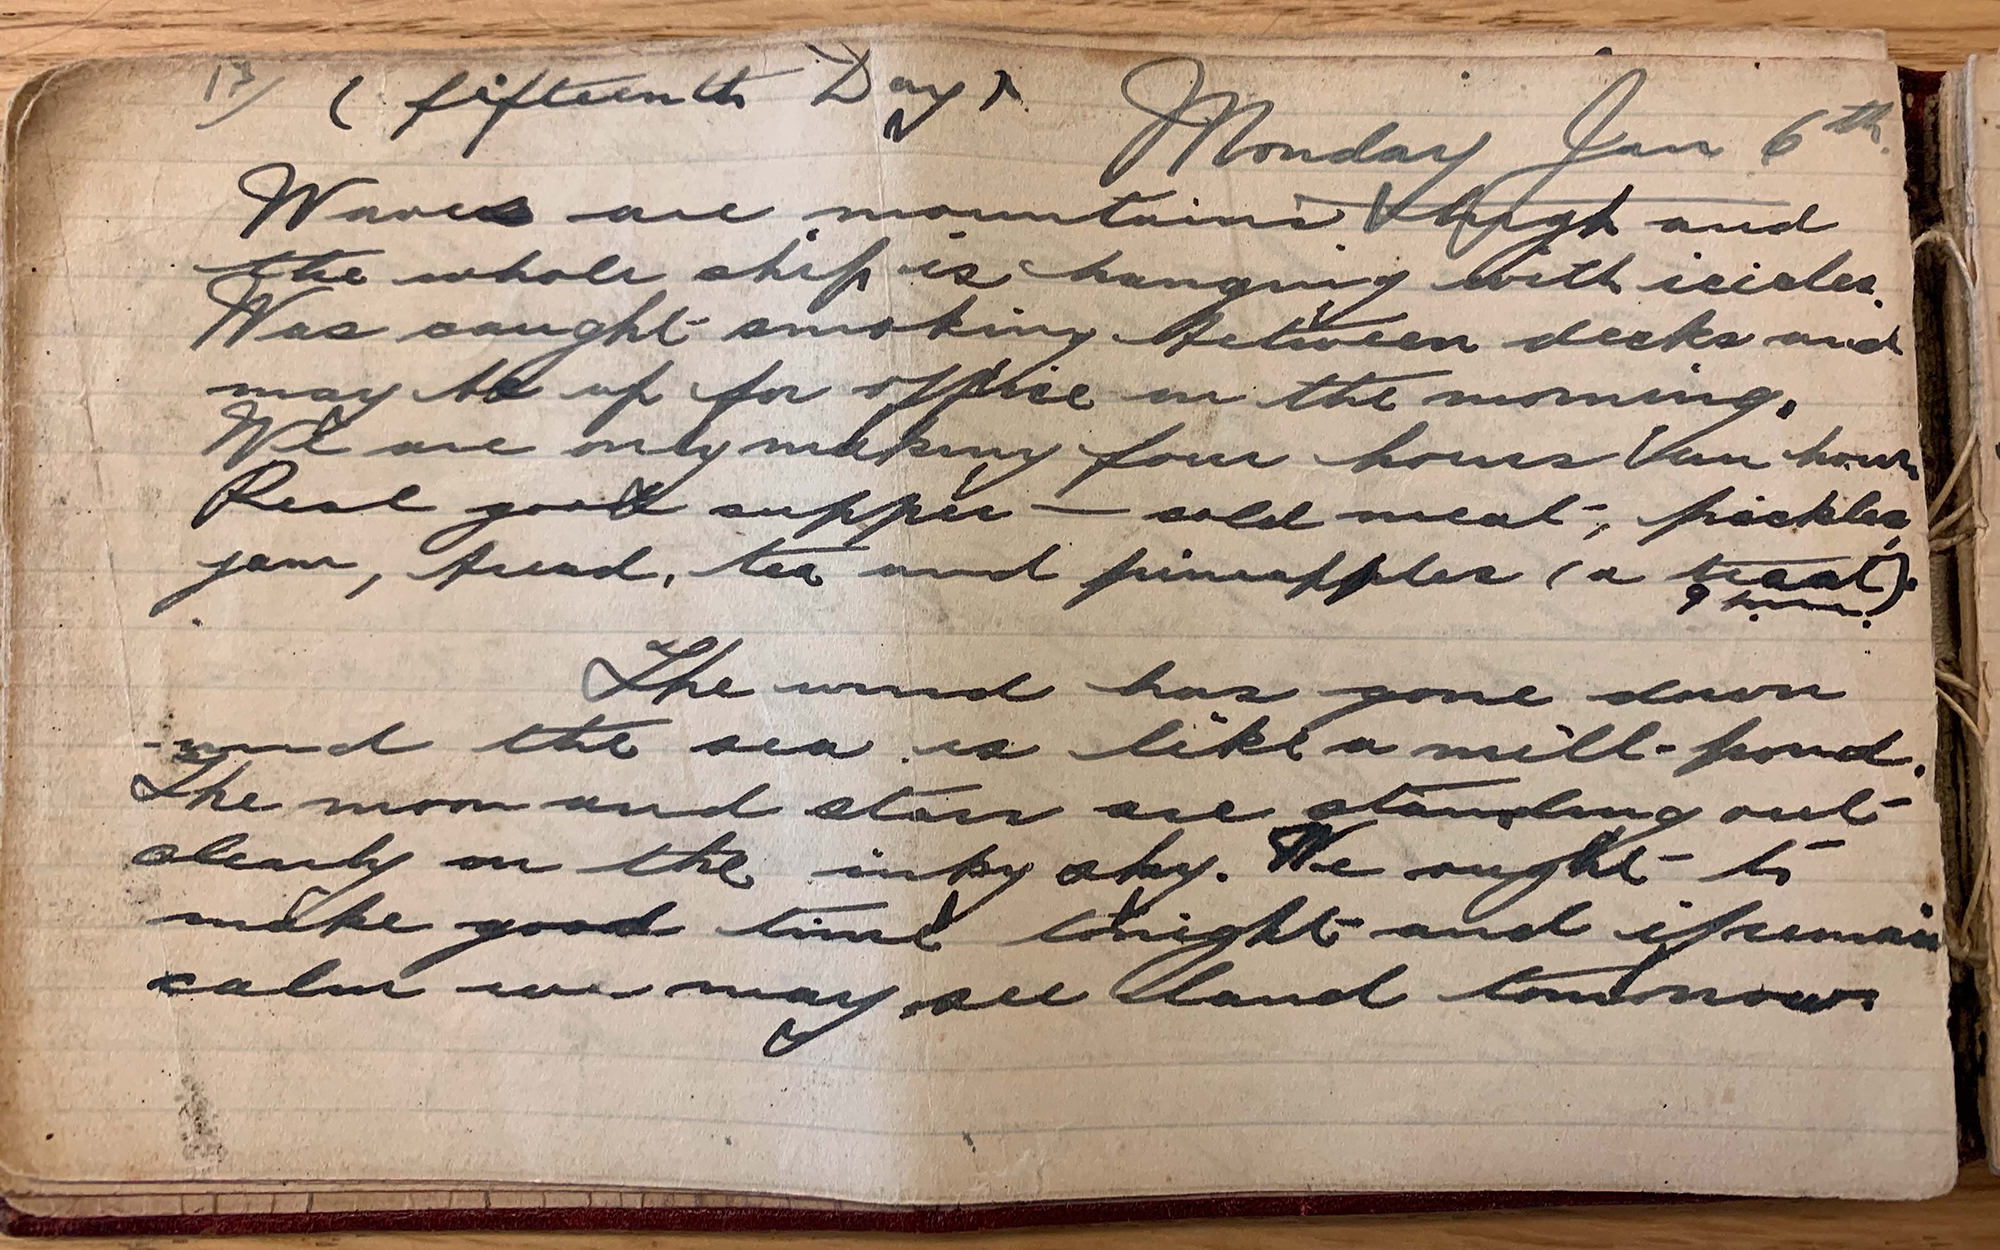 17/ (fifteenth Day).
Monday Jan 6th.
Waves are mountains high and
the whole ship is hanging with icicles.
Was caught smoking between decks and
may be up for office in the morning.
We are only making four hours an hour
Real good supper — cold meat, pickles,
jam, bread, tea and pineapples (a treat).
9 p.m.
The wind has gone down
and the sea is like a mill-pond.
The moon and stars are standing out
clearly in the inky sky. We ought to
make good time tonight and if remain
calm we may see land tomorrow.